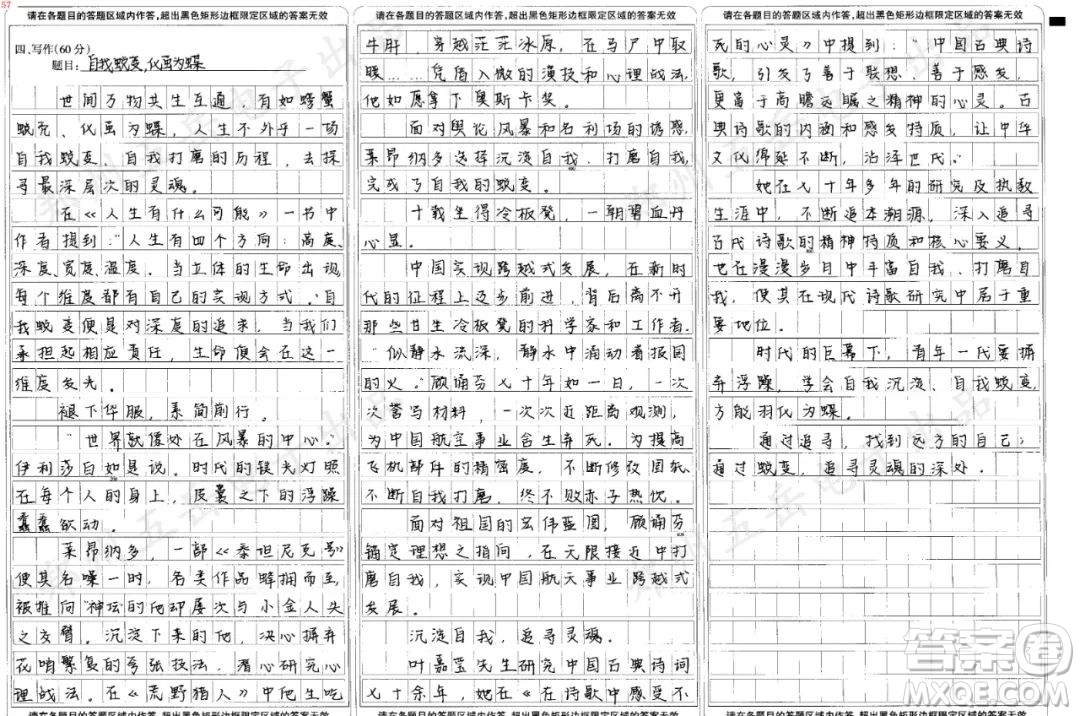 57
请在各题目的答题区域内作答,超出黑色矩形边框限定区域的答案无效
四、写作(60分)
题目:自我蜕变,化茧为蝶
世间万物共生互通,有如螃蟹
蜕壳、化茧为蝶,人生不外乎一场
自我蜕变、自我打磨的历程,去探
寻最深层次的灵魂。
在《人生有什么可能》一书中
作者提到:“人生有四个方向:高度、
深度、宽度、温度。当立体的生命出现,
每个维度都有自己的实现方式。”自
我蜕变便是对深度的追求,当我们
承担起相应责任,生命便会在这一
维度发光。
褪下华服,素简前行。
“世界就像处在风暴的中心。”
伊利莎白如是说。时代的镁光灯照
在每个人的身上,庆囊之下的浮躁
蠢蠢欲动。
莱昂纳多,一部《泰坦尼克号》
使其名噪一时,各类作品蜂拥而至,
被推向“神坛的他却屡次与小金人失
之交臂。沉淀下来的他,决心摒弃
花哨繁复的夸张技法,潜心研究心
理战法。在《荒野猎人》中他生吃
请在各题目的答题区域内作答,超出黑色矩形边框限定区域的答案无效
请在各题目的答题区域内作答,超出黑色矩形边框限定区域的答案无效
牛肝,穿越茫茫冰原,在马尸中取
暖……凭借入微的演技和心理战法,
他如愿拿下奥斯卡奖。
面对舆论风暴和名利场的诱惑,
莱昂纳多选择沉淀自我、打磨自我,
完成了自我的蜕变。
十载坐得冷板凳,一朝碧血丹
心显。
中国实现跨越式发展,在新时
代的征程上迈步前进,背后离不开
那些甘坐冷板凳的科学家和工作者。
“似静水流深,静水中涌动着报国
的火。”顾诵芬七十年如一日,一次
次誊写材料,一次次近距离观测,
为中国航空事业舍生弃死。为提高
飞机部件的精密度,不断修改图纸,
不断自我打磨,终不败赤子热忱。
面对祖国的宏伟蓝图,顾诵芬
锚定理想之指向,在无限接近中打
磨自我,实现中国航天事业跨越式
发展。
沉淀自我,追寻灵魂。
叶嘉莹先生研究中国古典诗词
七十余年,她在《在诗歌中感受不
请在各题目的答题区域内作答,超出黑色矩形边框限定区域的答案无效
请在各题目的答题区域内作答,超出黑色矩形边框限定区域的答案无效
死的心灵》中提到:“中国古典诗
歌,引发了善于联想、善于感发、
更富于高瞻远瞩之精神的心灵。”古
典诗歌的内涵和感发特质,让中华
文化绵延不断,沾泽巴氏。
她在七十年多年的研究及执教
生涯中,不断追本溯源,深入追寻
古代诗歌的精神特质和核心要义,
也在漫漫岁月中丰富自我、打磨自
我,使其在现代诗歌研究中居于重
要地位。
时代的巨幕下,青年一代要摒
弃浮躁,学会自我沉淀、自我蜕变,
方能羽化为蝶。
通过追寻,找到远方的自己;
通过蜕变,追寻灵魂的深处。
请在各题目的答题区域内作答,超出黑色矩形边框限定区域的答案无效
答案圈
MXQE.COM